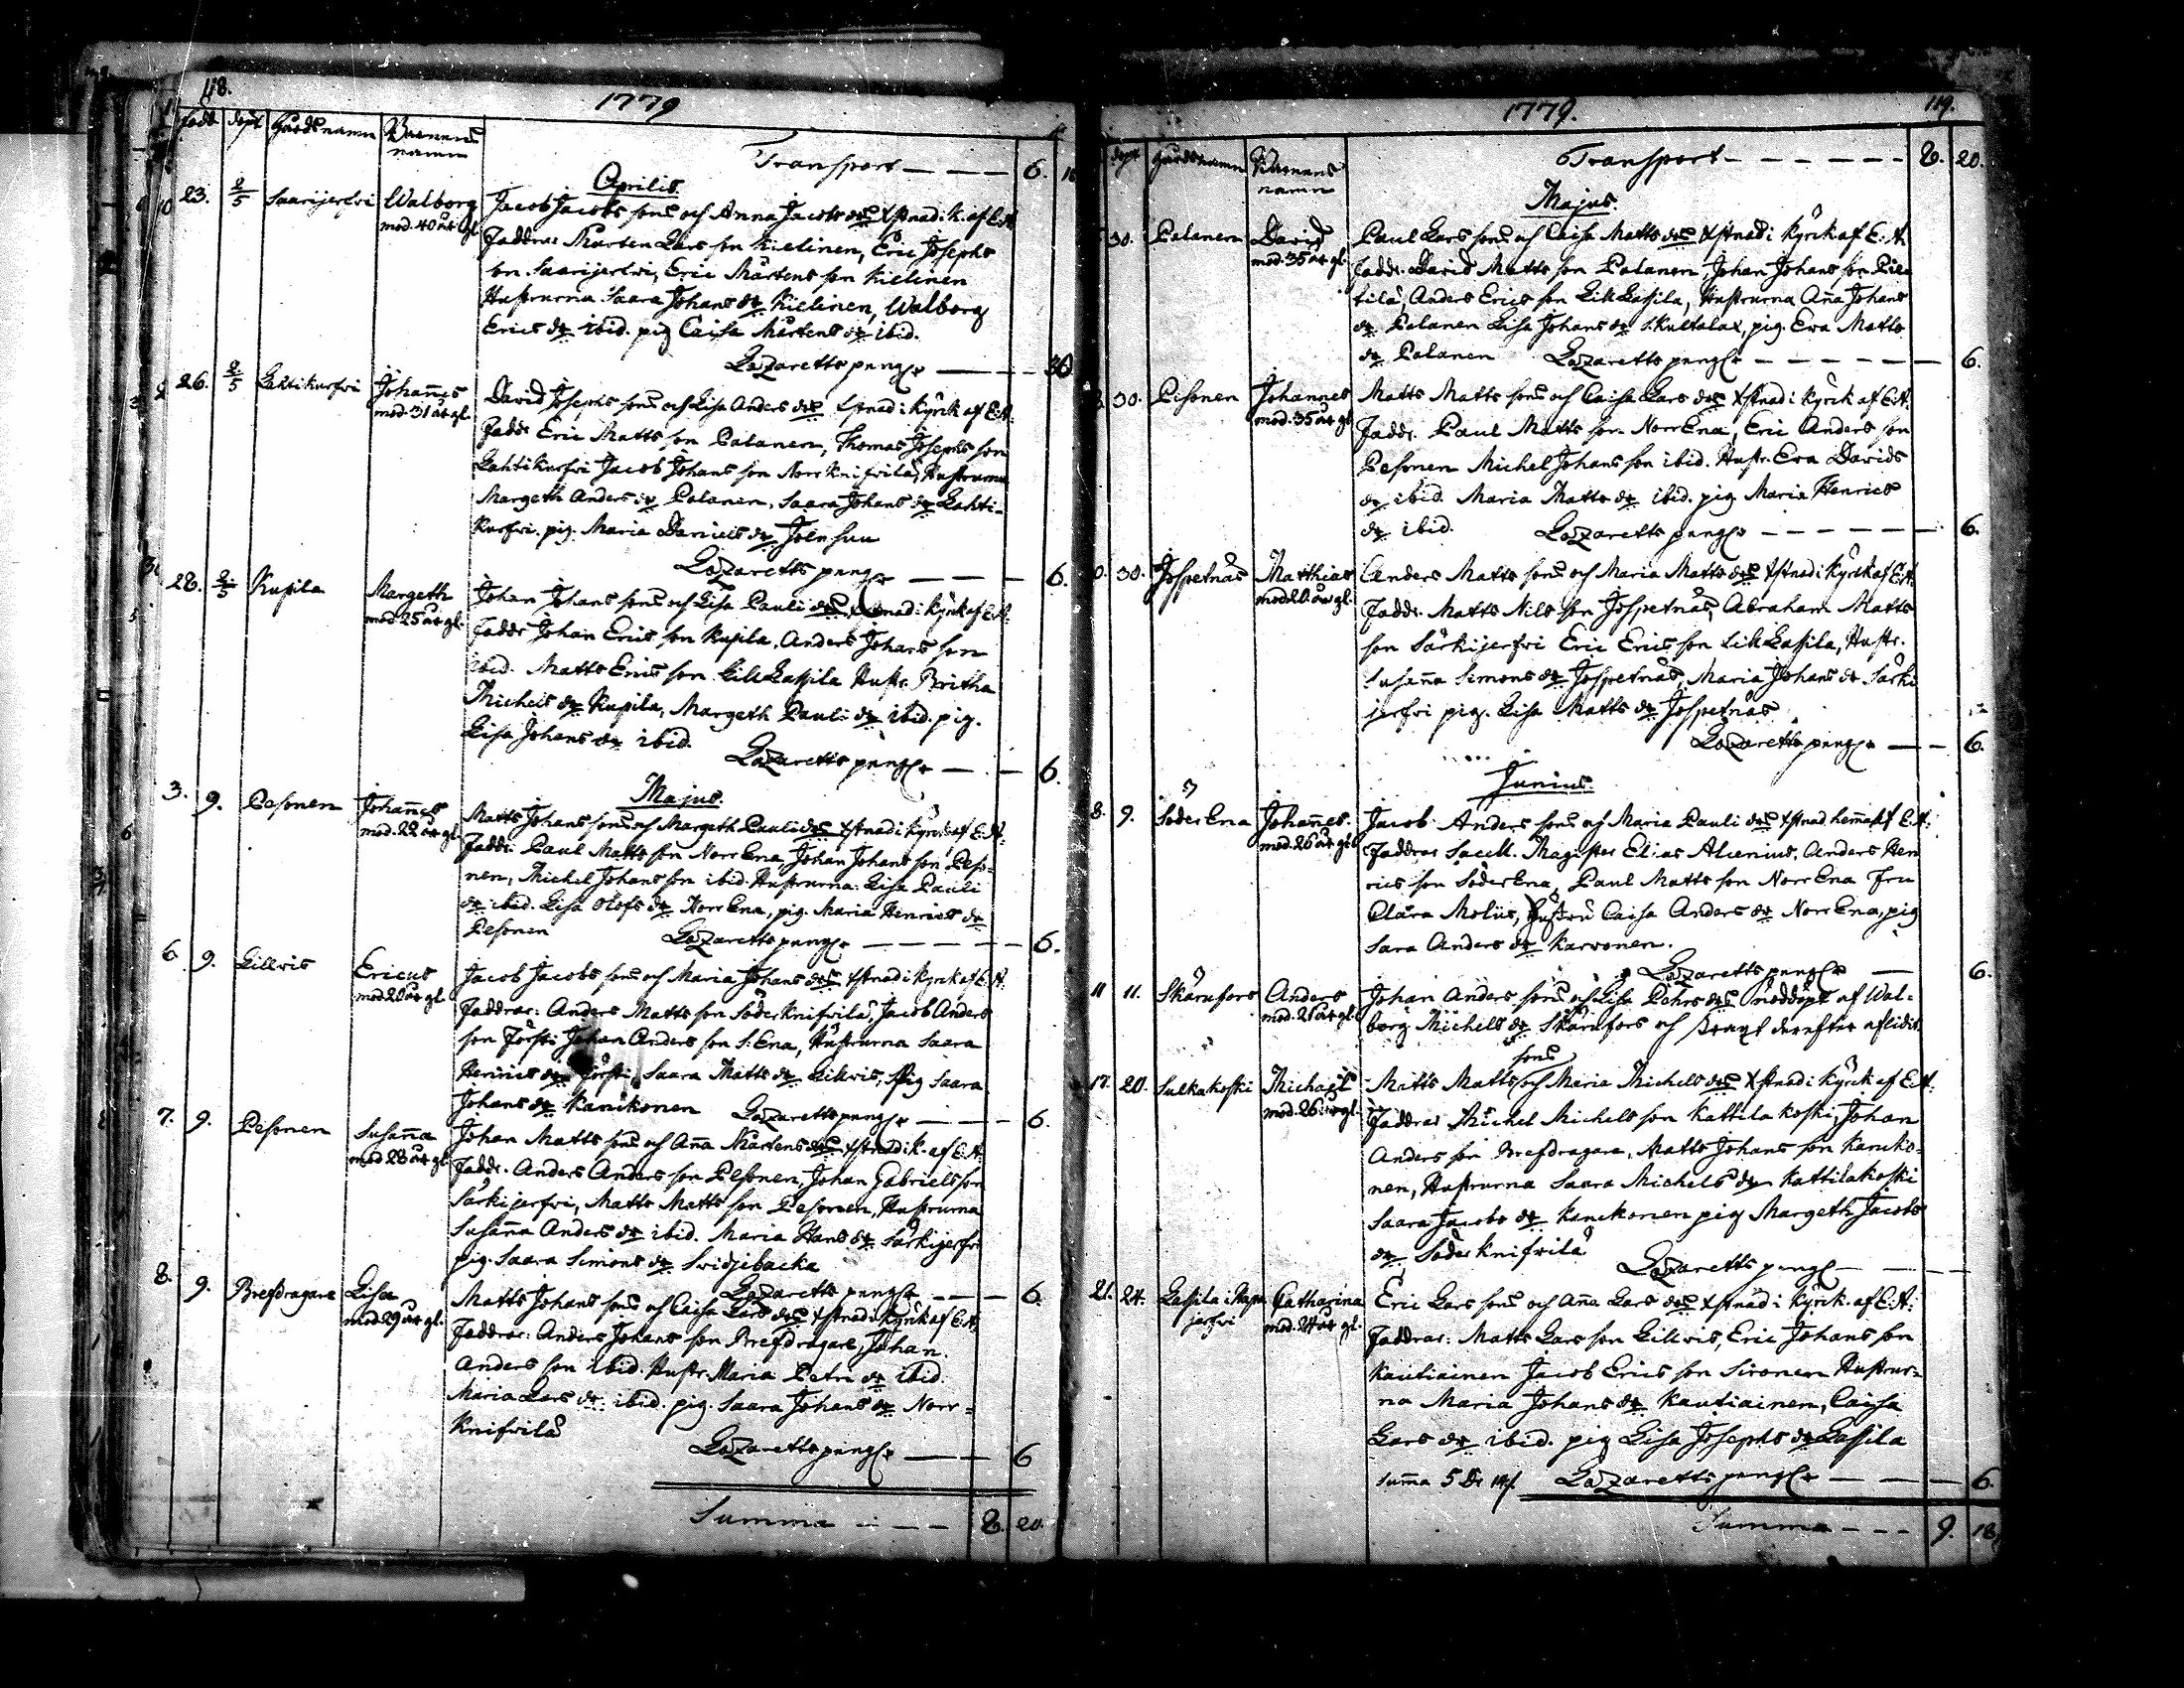 118.
1779
Född döpt Gårds namn Barnens namn
Transport - - - 6.
Aprilis.
23. 2/5 Saarijerfvi Walborg mod. 40 år gl.
Jacob Jacobs sons och Anna Jacobs drs xstnad i K. af E.A.
Faddrar Mårten Lars son Kielinen, Eric Josephs
son Saarijerfvi, Eric Mårtens son Kielinen
Hustrurna Saara Johans dr Kielinen, Walborg
Erics dr ibid. pig Caisa Mårtens dr ibid.
Lazaretts peng.
26. 2/5 Lahtikurfvi Johannes mod. 31 år gl.
David Josephs sons och Lisa Anders drs xstnad i Kyrck af E:A:
Fadd. Eric Matts son Palanen, Thomas Josephs son
Lahtikurfvi Jacob Johans son Norrknifvilä, Hustrurna
Margeth Anders dr Palanen, Saara Johans dr Lahti-
kurfvi. pig. Maria Daniels dr Joensuu
Lazaretts peng. - - - 6.
28. 2/5 Kupila Margeth mod. 25 år gl.
Johan Johans sons och Lisa Pauli drs xstnad i Kyrk af E:A:
Fadd. Johan Erics son Kupila, Anders Johans son
ibid. Matts Erics son LillLassila Hustr. Britha
Michels dr Kupila, Margeth Pauli dr ibid. pig.
Lisa Johans dr ibid.
Lazaretts peng. - - 6.
Majus.
3. 9. Pesonen Johannes mod. 22 år gl.
Matts Johans sons och Margeth Pauli drs xstnad i Kyrck af E:A:
Fadd. Paul Matts son NorrEna Johan Johans son Peso-
nen, Michel Johans son ibid. Hustrurna: Lisa Pauli
dr ibid. Lisa Olofs dr NorrEna, pig. Maria Henrics dr
Pesonen Lazaretts peng. - - - 6.
6. 9. Lillvis Ericus mod. år gl.
Jacob Jacobs sons och Maria Johans drs xstnad i Kyrk af E:A:
Faddrar: Anders Matts son Söderknifvilä, Jacob Anders
son Försti Johan Anders son S:Ena, Hustrurna Saara
Henrics dr Försti, Saara Matts dr Lillvis, Pig Saara
Johans dr Kanikonen Lazaretts peng. - - - 6.
7. 9. Pesonen Susanna mod 28 år gl.
Johan Matts sons och Anna Mårtens drs xstnad i K. af E:A:
Fadd. Anders Anders son Pesonen, Johan Gabriels son
Särkijerfvi, Matts Matts son Pesonen, Hustrurna
Susanna Anders dr ibid. Maria Hans dr Särkijerfvi
pig. Saara Simons dr Svidjebacka
Lazaretts peng. - - 6.
8. 9. Brefdragare Lisa mod 29 år gl.
Matts Johans sons och Caisa Lars drs xstnad i Kyrk af E:A:
Faddrar: Anders Johans son Brefdragare, Johan.
Anders son ibid. Hustr. Maria Petri dr ibid.
Maria Lars dr ibid. pig. Saara Johans dr Norr-
Knifvilä
Lazaretts peng. - - 6
Summa - - - 8. 20.
119.
1779.
döpt Gårds namn Barnens namn
Transport - - - - - - 8. 20.
Majus.
30. Palanen David mod. 35 år gl.
Paul Lars sons och Caisa Matts drs xstnad i Kyrck af E:A:
Fadd. David Matts son Palanen, Johan Johans son
tilä, Anders Erics son LillLassila, Hustrurna Anna Johans
dr Palanen Lisa Johans dr S.Kultalax, pig. Eva Matts
dr Palanen Lazaretts peng. - - - - - 6.
30. Pesonen Johannes mod. 35 år gl.
Matts Matts sons och Caisa Lars drs xstnad i Kyrck af E:A:
Fadd. Paul Matts son NorrEna, Eric Anders son
Pesonen Michel Johans son ibid. Hustr. Eva Davids
dr ibid. Maria Matts dr ibid. pig Maria Henrics
dr ibid. Lazaretts peng. - - - - - 6.
30. Jospetnäs Matthias mod. år gl.
Anders Matts sons och Maria Matts drs xstnad i Kyrck af E:A:
Fadd. Matts Nils son Jospetnäs, Abraham Matts
son Särkijerfvi Eric Erics son LillLassila, Hustr.
Susanna Simons dr Jospetnäs, Maria Johans dr Särki
jerfvi pig. Lisa Matts dr Jospetnäs
Lazaretts peng. - - 6.
Junius.
8. 9. SöderEna Johannes. mod. 26 år gl.
Jacob Anders sons och Maria Pauli drs xstnad hemma af E:A:
Faddrar Sacell. Magister Elias Alcenius, Anders Hen
rics son SöderEna, Paul Matts son NorrEna Fru
Clara Molüs, Hustru Caisa Anders dr NorrEna, pig
Sara Anders dr Karvonen.
Lazaretts peng. - 6.
11 11. Skärufors Anders mod. 21 år gl.
Johan Anders sons och Lisa Pehrs drs nöddöpt af Wal-
borg Michels dr Skärufors och straxt derefter afliden.
17. 20. Sulkakoski Michael mod. 26 år gl.
Matts Matts sons och Maria Michels drs xstnad i Kyrck af E:A:
Faddrar Michel Michels son Kattilakoski, Johan
Anders son Brefdragare, Matts Johans son Kaniko-
nen, Hustrurna Saara Michels dr Kattilakoski
Saara Jacobs dr Kanikonen pig Margeth Jacobs
dr Söderknifvilä
Lazaretts peng. - -
21. 24. Lassila i jerfvi Catharina mod. 24 år gl.
Eric Lars sons och Anna Lars drs xstnad i Kyrck. af E:A:
Faddrar: Matts Lars son Lillvis, Eric Johans son
Kautiainen Jacob Erics son Sironen Hustrur-
na Maria Johans dr Kautiainen, Caisa
Lars dr ibid. pig Lisa Josephs dr Lassila
Summa 5 Lazaretts peng. - - - 6.
Summa - - - 9. 18.